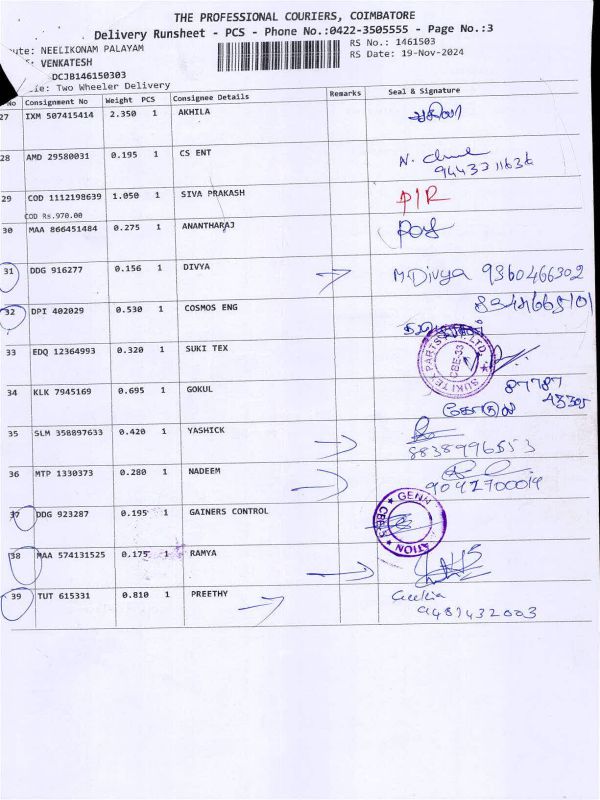 THE PROFESSIONAL COURIERS, COIMBATORE
Delivery Runsheet - PCS - Phone No.:0422-3505555 - Page No.:3
ute: NEELIKONAM PALAYAM
RS No.: 1461503
: VENKATESH
RS Date: 19-Nov-2024
DCJB146150303
le: Two Wheeler Delivery
No Consignment No Weight PCS Consignee Details Remarks Seal & Signature
27 IXM 507415414 2.350 1 AKHILA அகிலா
28 AMD 29580031 0.195 1 CS ENT
29 COD 1112198639 1.050 1 SIVA PRAKASH P/R
COD Rs.970.00
30 MAA 866451484 0.275 1 ANANTHARAJ
31 DDG 916277 0.156 1 DIVYA M Divya 9360466302
32 DPI 402029 0.530 1 COSMOS ENG
33 EDQ 12364993 0.320 1 SUKI TEX SUKI TEX PARTS LTD. CBE-33
34 KLK 7945169 0.695 1 GOKUL 87787
35 SLM 358897633 0.420 1 YASHICK 8838996553
36 MTP 1330373 0.280 1 NADEEM 9042700014
37 DDG 923287 0.195 1 GAINERS CONTROL
38 MAA 574131525 0.175 1 RAMYA
39 TUT 615331 0.810 1 PREETHY
9487432003